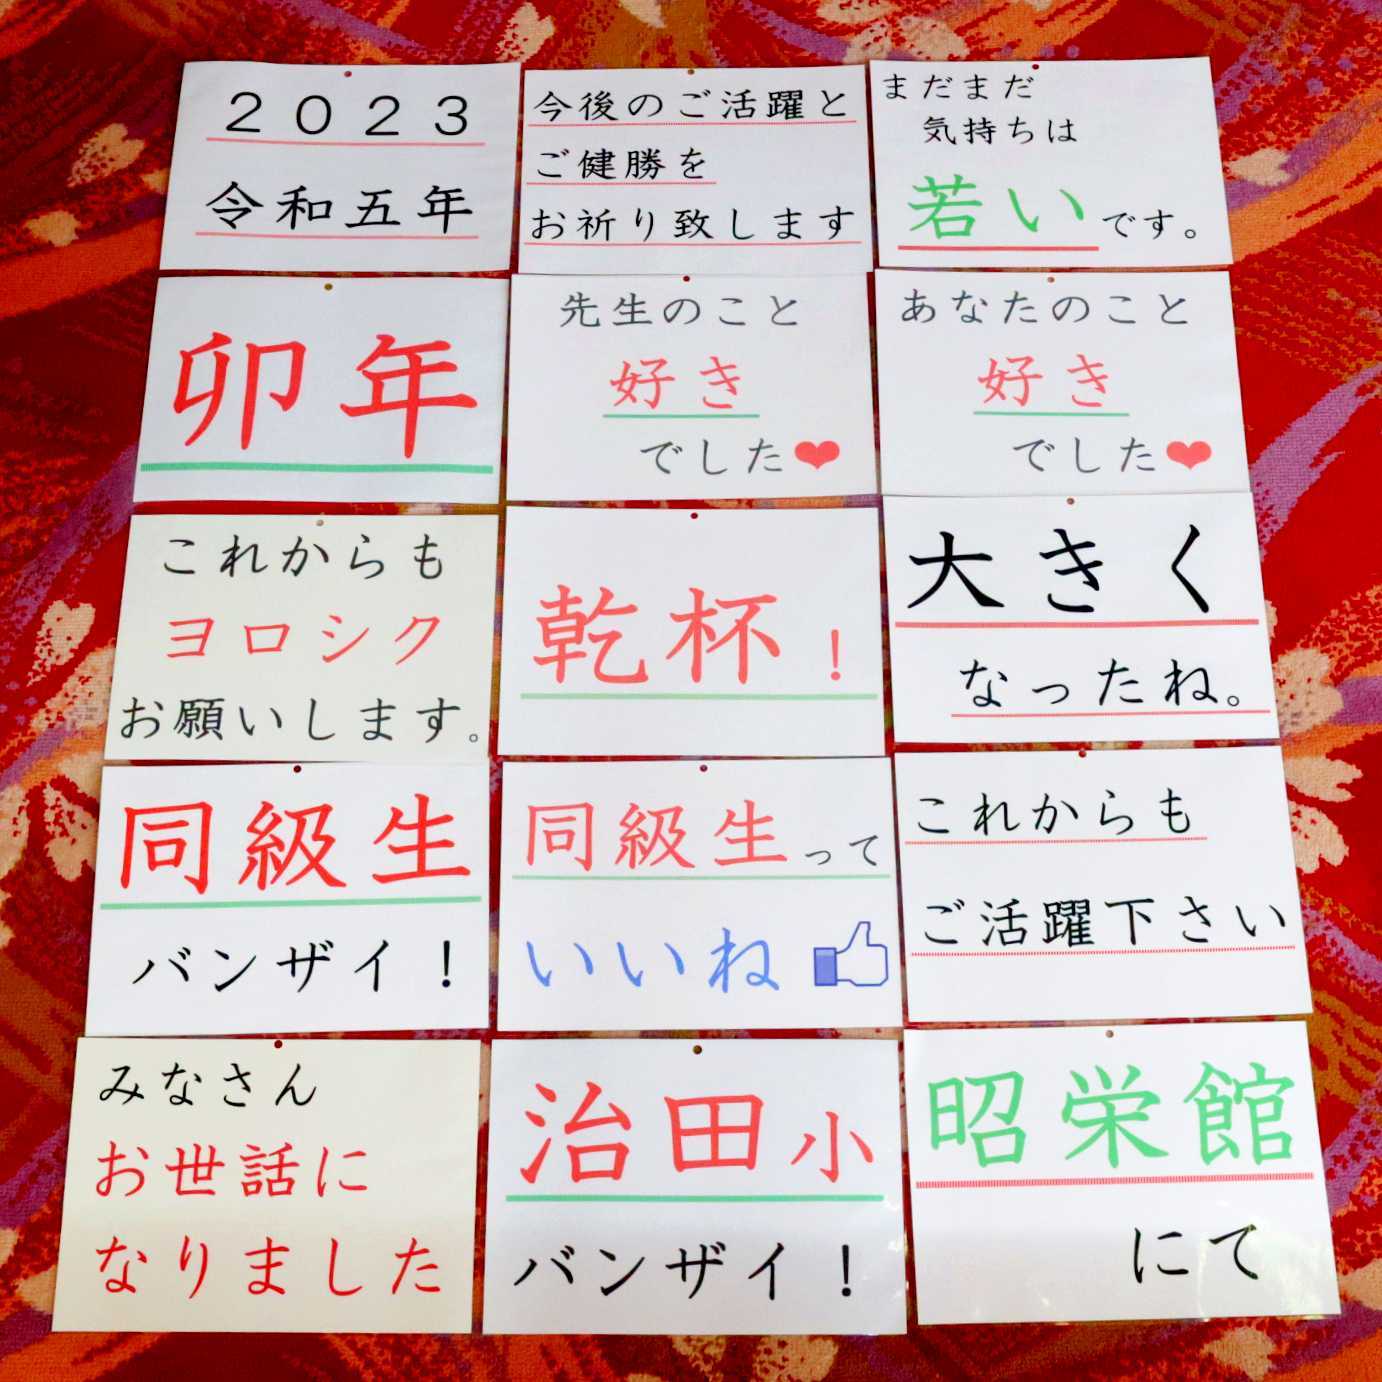 ２０２３
令和五年
今後のご活躍と
ご健勝を
お祈り致します
まだまだ
気持ちは
若いです。
卯年
先生のこと
好き
でした❤
あなたのこと
好き
でした❤
これからも
ヨロシク
お願いします。
乾杯！
大きく
なったね。
同級生
バンザイ！
同級生って
いいね
これからも
ご活躍下さい
みなさん
お世話に
なりました
治田小
バンザイ！
昭栄館
にて